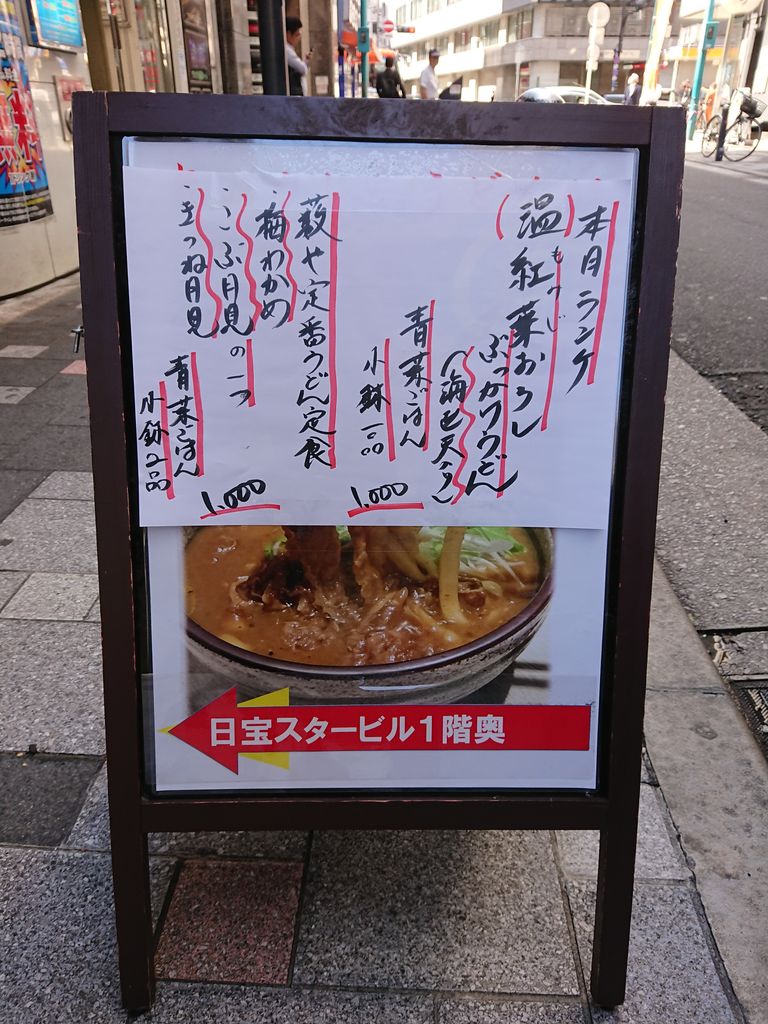 本月ランチ
(温)紅葉おろし
もみじ
ぶっかけうどん
(海老天入り)
青菜ごはん
小鉢一品
1,000
薮や定番うどん定食
・梅わかめ
・こぶ月見
・きつね月見
の一つ
青菜ごはん
小鉢2品
1,000
日宝スタービル1階奥